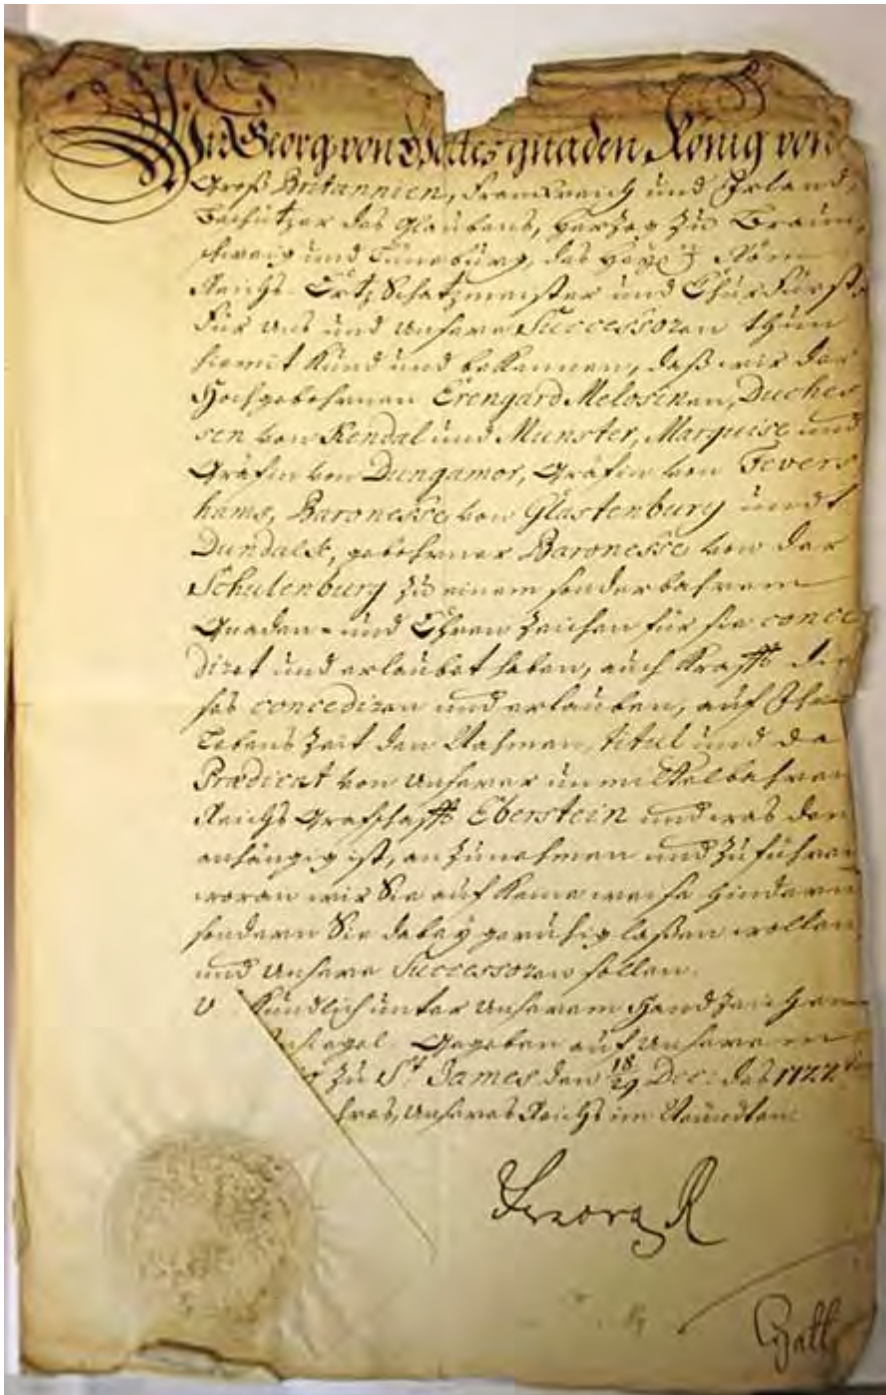 Wir Georg von Gottes gnaden König von
Groß Britannien, Franckreich und Irland,
Beschützer des Glaubens, Hertzog zu Braun-
schweig und Lüneburg, des Röm:
Reichs Ertz Schatzmeister und Chur Fürst
Für Uns und Unsere Successoren thun
hiemit Kund und bekennen, daß wir der
Hochgebohrnen Erengard Melosinen, Duches
sen von Kendal und Munster, Marquise und
Gräfin von Dungamor, Gräfin von Fevers
hams, Baronesse von Glastenbury undt
Dundalk, gebohrner Baronesse von der
Schulenburg zu einem sonderbahrem
Gnaden- und Ehren Zeichen für sie conce
diret und erlaubet haben, auch Krafft die
ses concediren und erlauben, auf Ihre
Lebens Zeit den Nahmen, titul und da
Prædicat von Unserer unmittelbahren
Reichs Grafschafft Eberstein und was dem
anhängig ist, anzunehmen und zu führen
woran wir Sie auf Keine weise hindern
sondern Sie dabey geruhig laßen wollen,
und Unsere Successoren sollen.
U Kundlich unter Unserem Handzeichen
siegel. Gegeben auf Unserem
zu St James den 18/29 Dec: des 1722ten
hres, Unseres Reichs im Neundten.
George R